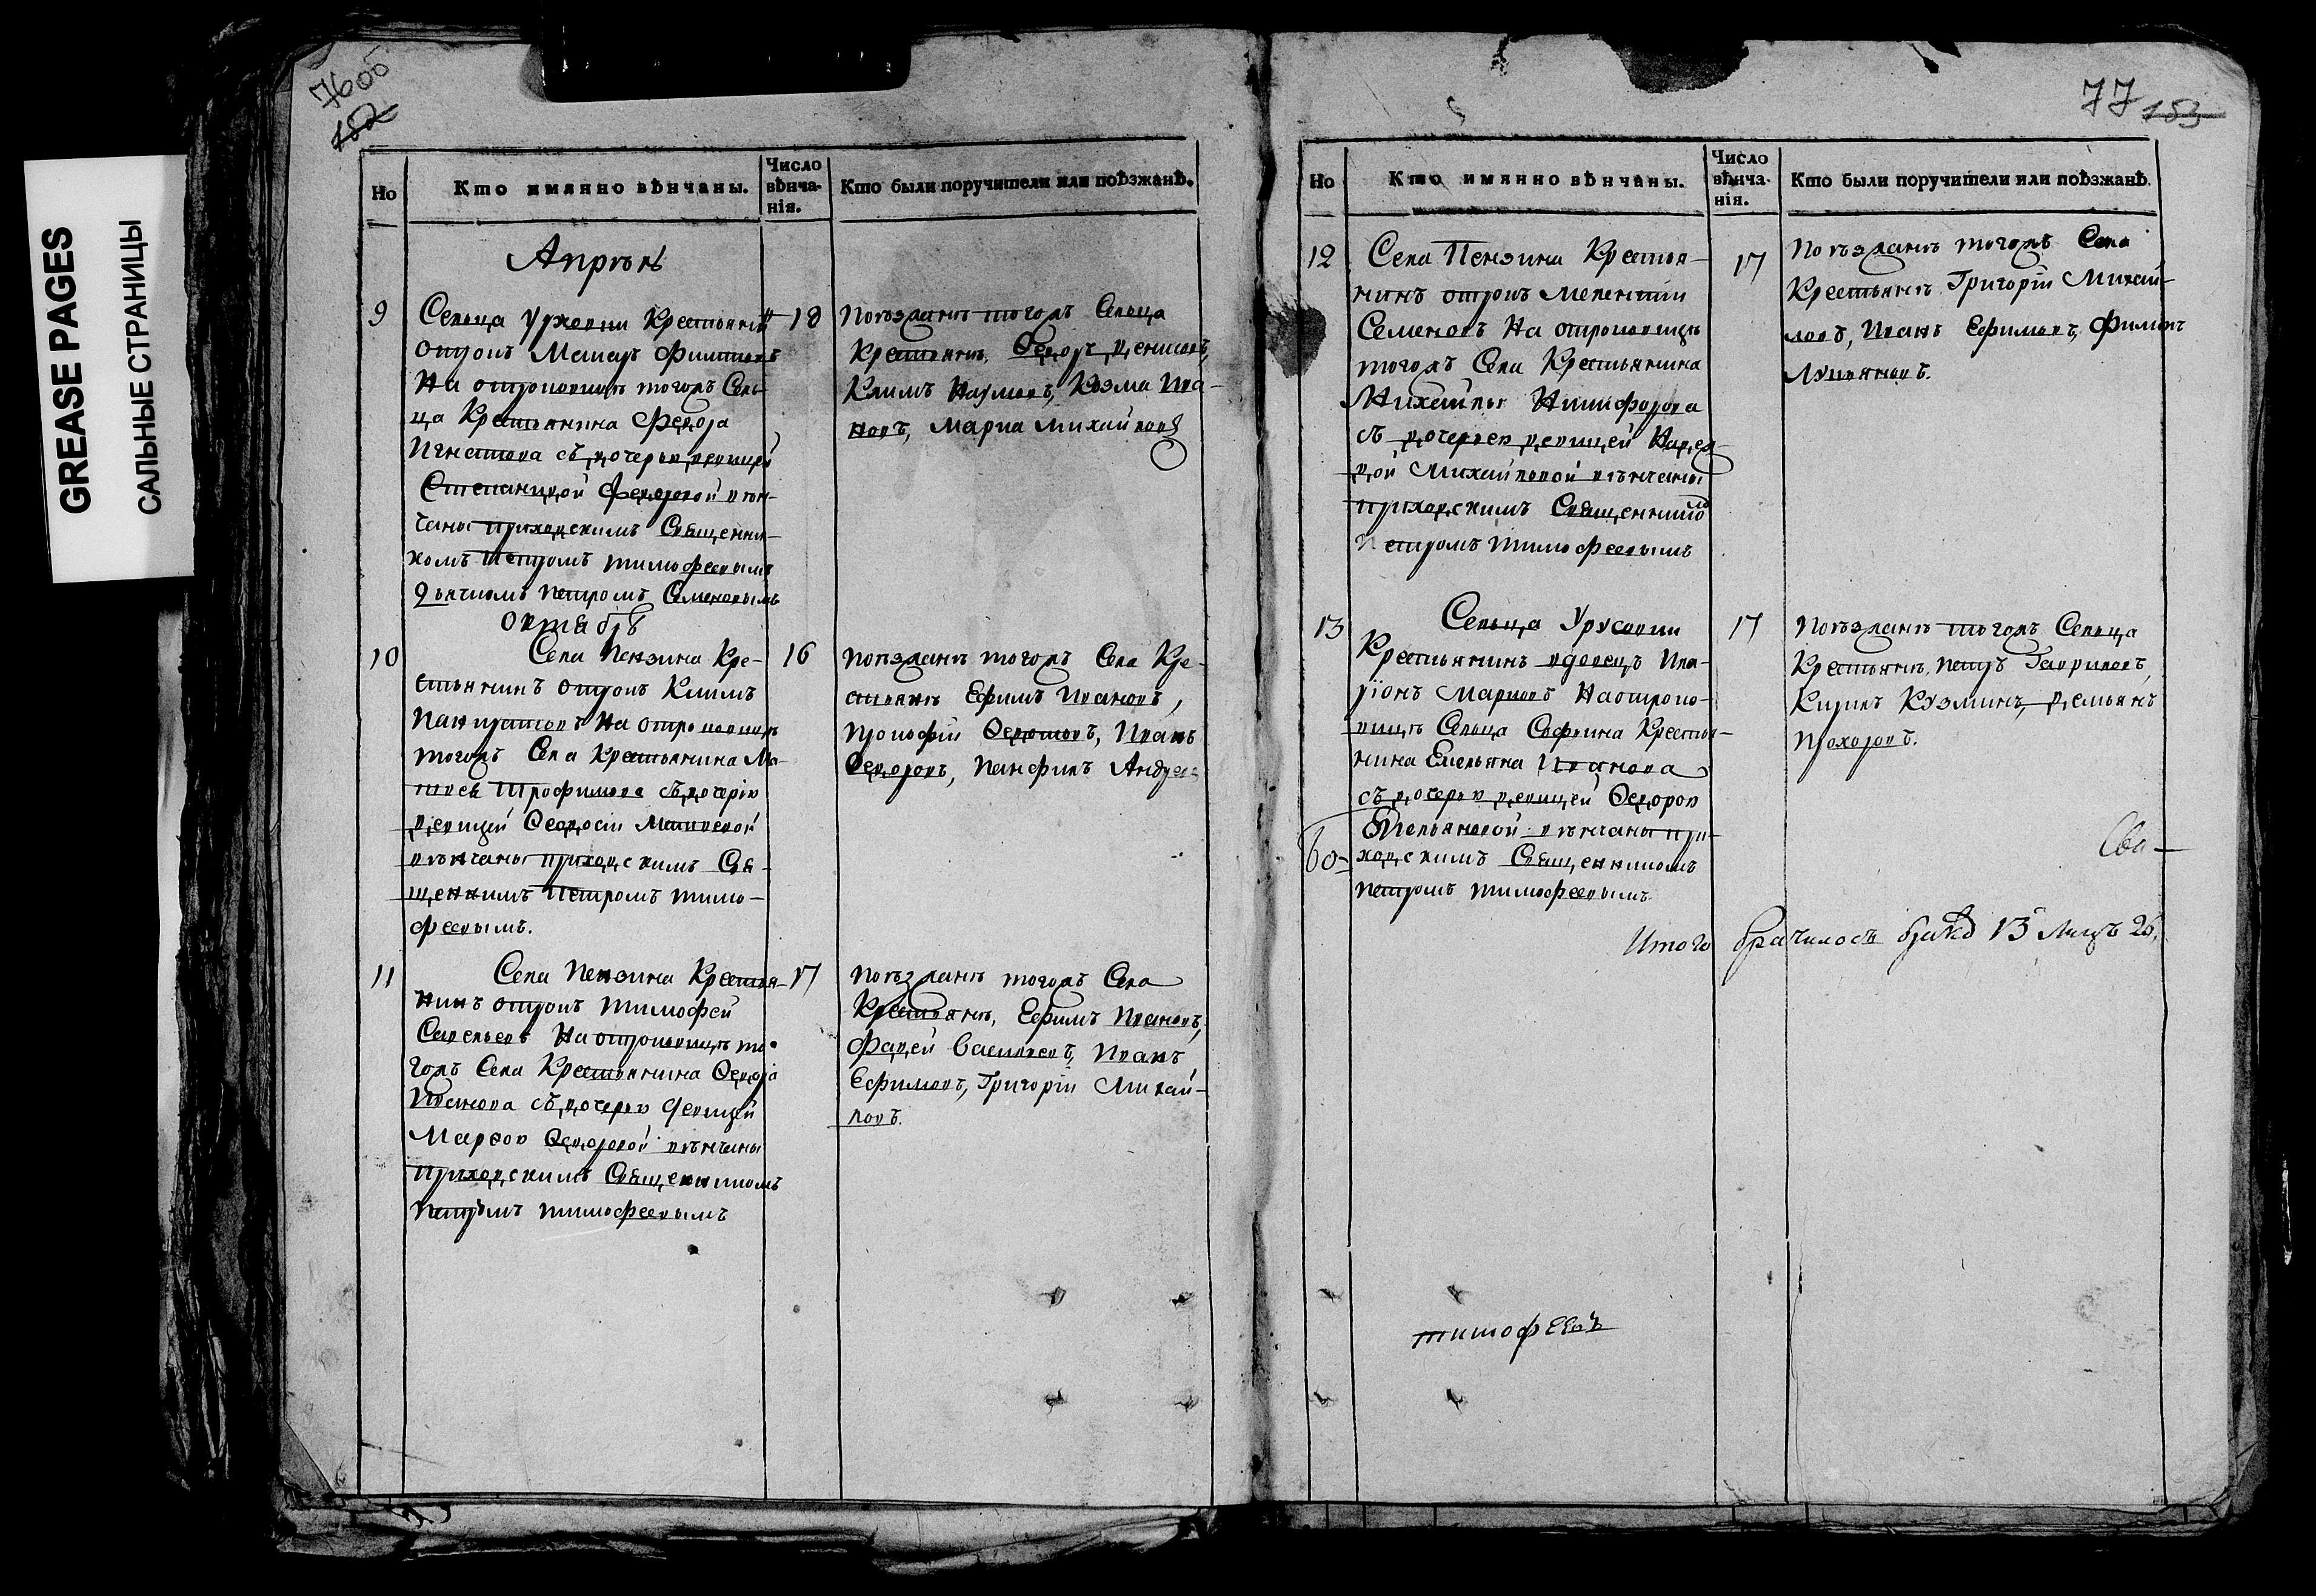 GREASE PAGES
САЛЬНЫЕ СТРАНИЦЫ
76об
182
Но
Кто имянно вѣнчаны.
Число вѣнча-нія.
Кто были поручители или поѣзжанѣ.
Апрѣль
9
Сельца Урховки Крестьянинъ
отрокъ Матвѣ Филиповъ
На отроковицѣ тогожъ Сель-
ца Крестьянина Федора
Игнатова съ дочерью девицей
Степанидой Федоровой вѣн-
чаны приходскимъ Священни-
комъ Петромъ тимофеевымъ
дьячкомъ петромъ Семеновымъ
18
Поѣзжанѣ тогожъ Сельца
Крестьянѣ, Ѳедоръ денисовъ,
Климъ Наумовъ, Козма Ива-
новъ, марка михайловъ
октября
10
Села пензина Кре-
стьянинъ отрокъ Климъ
Панкратовъ На отроковицѣ
тогожъ Села Крестьянина Ма-
твея Трофимова съ дочерію
девицей Ѳеодосіи Матвеевой
вѣнчаны приходскимъ Свя-
щенникомъ Петромъ тимо-
феевымъ.
16
поѣзжанѣ тогожъ Села Кре-
стьянѣ Ефимъ Ивановъ,
прокофій Ѳедотовъ, Иванъ
Ѳедоровъ, Панфилъ Андреевъ
11
Села Пензина Крестья-
нинъ отрокъ тимофей
Савельевъ На отроковицѣ то-
гожъ Села Крестьянина Ѳедора
Иванова съ дочерью девицей
Марѳой Ѳедоровой вѣнчаны
приходскимъ Священникомъ
Петромъ тимофеевымъ
17
поѣзжанѣ тогожъ Села
Крестьянѣ, Ефимъ Ивановъ,
Фадей Васильевъ, Иванъ
Ефимовъ, Григорій Михай-
ловъ.
77 183
Но
Кто имянно вѣнчаны.
Число вѣнча-нія.
Кто были поручители или поѣзжанѣ.
12
Села Пензина Крестья-
нинъ отрокъ Мелентій
Семеновъ На отроковицѣ
тогожъ Села Крестьянина
Михайлы Никифорова
съ дочерью девицей Надеж-
дой Михайловой вѣнчаны
приходскимъ Священникомъ
Петромъ тимофеевымъ
17
Поѣзжанѣ тогожъ Села
Крестьянѣ Григорій Михай-
ловъ, Иванъ Ефимовъ, Филипъ
Лукьяновъ.
13
Сельца Урусовки
Крестьянинъ вдовецъ Ила-
ріонъ Марковъ На отроко-
вицѣ Сельца Софьина Крестья-
нина Емельяна Иванова
съ дочерью девицей Ѳедорой
Емельяновой вѣнчаны при-
ходскимъ Священникомъ
петромъ тимофеевымъ
17
Поѣзжанѣ тогожъ Сельца
Крестьянѣ, петръ Гавриловъ,
Кирилъ Кузминъ, демьянъ
прохоровъ.
Сва-
Итого брачилось браковъ 13 Лицъ 26.
тимофеевъ